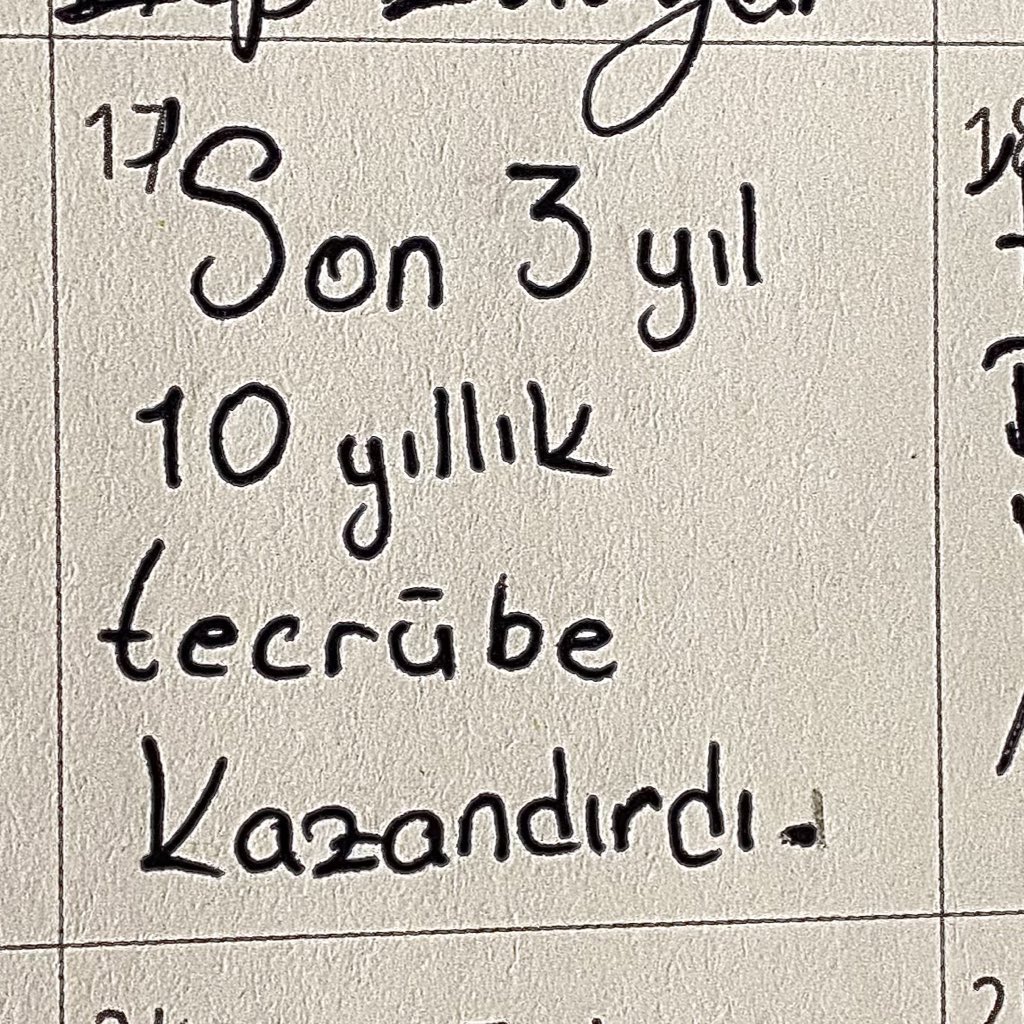 17 Son 3 yıl
18
10 yıllık
tecrübe
Kazandırdı.